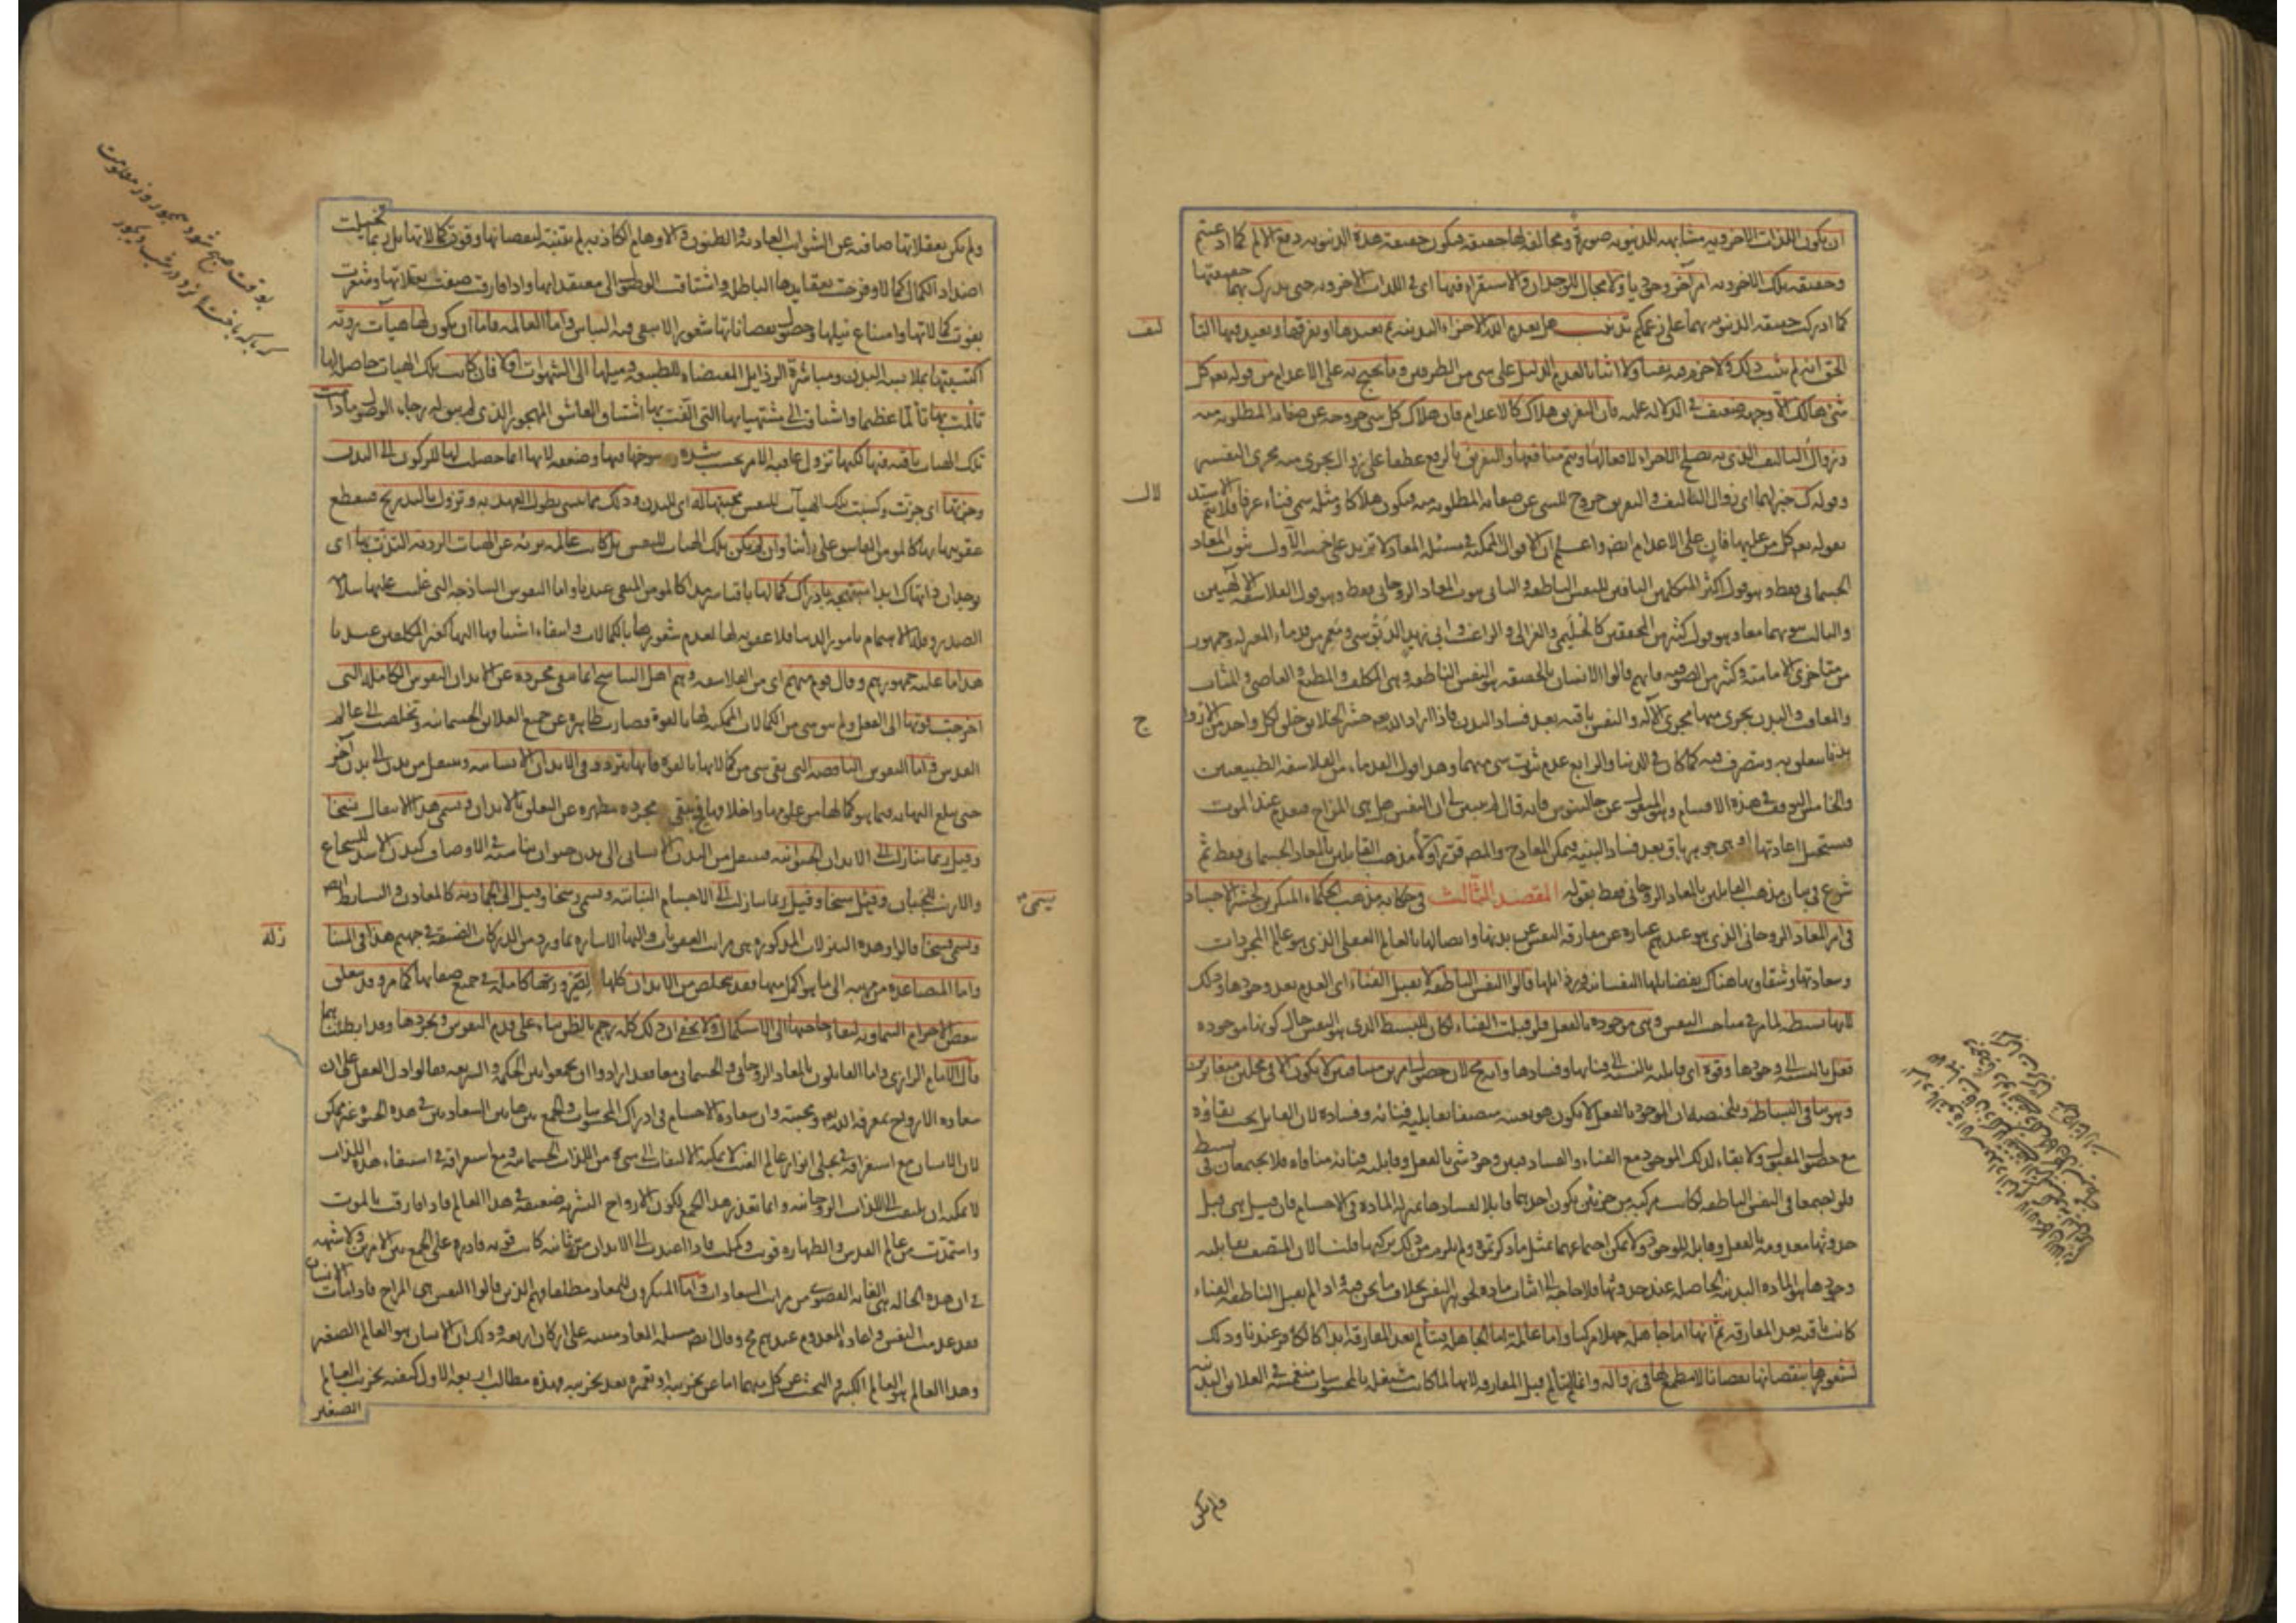 ان يكون اللذات الاخروية مشابهة للدنيوية صورة ومخالفة لها حقيقة فيكون حقيقة هذه الدنيوية دفع الالم كما ادعيتم
وحقيقة تلك الاخروية امر آخر وجوديا ولا مجال للوجدان والاستقراء فيها اى فى اللذات الاخروية حتى يدرك بهما حقيقتها
كما ادركت حقيقة الدنيوية بهما على زعمكم تذنيب هل يعدم الله الاجزاء البدنية ثم يعيدها او يفرقها ويعيد فيها التأ
ليف
الحق انه لم يثبت ذلك ولا جزم فيه نفيا ولا اثباتا لعدم الدليل على شى من الطرفين وما يحتج به على الاعدام من قوله تعالى كل
شى هالك الا وجهه ضعيف فى الدلالة عليه فان التفريق هلاك كالاعدام فان هلاك كل شى خروجه عن صفاته المطلوبة منه
وزوال التاليف الذى به تصلح الاجزاء لافعالها وتتم منافعها والتفريق بالرفع عطفا على زوال يجرى منه مجرى التفسير
وقوله كـ خبر لهما اى زوال التأليف والتفريق خروج للشى عن صفاته المطلوبة منه فيكون هلاكا ومثله سمى فناء عرفا فلا يتم الاستد
لال
بقوله تعالى كل من عليها فان على الاعدام ايضا واعلم ان الاقوال الممكنة فى مسئلة المعاد لا تزيد على خمسة الاول ثبوت المعاد
الجسمانى فقط وهو قول اكثر المتكلمين النافين للنفس الناطقة والثانى ثبوت المعاد الروحانى فقط وهو قول الفلاسفة الالهيين
والثالث ثبوتهما معا وهو قول كثير من المحققين كالحليمى والغزالى والراغب وابى زيد الدبوسى ومعمر من قدماء المعتزلة وجمهور
من متأخرى الامامية وكثير من الصوفية فانهم قالوا الانسان بالحقيقة هو النفس الناطقة وهى المكلف والمطيع والعاصى والمثاب
والمعاقب والبدن يجرى منها مجرى الآلة والنفس باقية بعد فساد البدن فاذا اراد الله تعالى حشر الخلايق خلق لكل واحد من الاروا
ح
بدنا يتعلق به ويتصرف فيه كما كان فى الدنيا والرابع عدم ثبوت شى منهما وهذا قول القدماء من الفلاسفة الطبيعيين
والخامس التوقف فى هذه الاقسام وهو المنقول عن جالينوس فانه قال لم يتبين لى ان النفس هل هى المزاج فينعدم عند الموت
فيستحيل اعادتها او هى جوهر باق بعد فساد البنية فيمكن المعاد ح والمص قرر اولا مذهب القايلين بالمعاد الجسمانى فقط ثم
شرع فى بيان مذهب القايلين بالمعاد الروحانى فقط بقوله المقصد الثالث فى حكاية مذهب الحكماء المنكرين لحشر الاجساد
فى امر المعاد الروحانى الذى هو عندهم عبارة عن مفارقة النفس عن بدنها واتصالها بالعالم العقلى الذى هو عالم المجردات
وسعادتها وشقاوتها هناك بفضايلها النفسانية ورذايلها قالوا النفس الناطقة لا يقبل الفناء اى العدم بعد وجودها وذلك
لانها بسيطة لما مر فى مباحث النفس وهى موجودة بالفعل فلو قبلت الفناء لكان للبسيط الذى هو النفس حال كونها موجودة
فعل بالنسبة الى وجودها وقوة اى قابلية بالنسبة الى فنائها وفسادها وانه مح لان حصول امرين متنافيين لا يكون الا فى محلين متغايرين
وهو ينافى البساطة وتلخيصه ان الموجود بالفعل لا يكون هو بعينه متصفا بقابلية فنائه وفساده لان القابل يجب بقاؤه
مع حصول المقبول ولا بقاء لذلك الموجود مع الفناء والفساد فبين وجود شى بالفعل وقابلية فنائه منافاة فلا يجتمعان فى بسيط
فلو اجتمعا فى النفس الناطقة لكانت مركبة من جزئين يكون احدهما قابلا لفسادها بمنزلة المادة فى الاجسام فان قيل هى قبل
حدوثها معدومة بالفعل وقابلة للوجود ولا يمكن اجتماعهما بمثل ما ذكرتموه ولم يلزم من ذلك تركبها قلنا لان المتصف بقابلية
وجودها هو المادة البدنية الحاصلة عند حدوثها فلا حاجة الى اثبات مادة لجوهر النفس بخلاف ما نحن فيه واذا لم يقبل الناطقة الفناء
كانت باقية بعد المفارقة ثم انها اما جاهلة جهلا مركبا واما عالمة اما الجاهلة فيتألم بعد المفارقة ابدا كالكافر عندنا وذلك
لشعورها بنقصانها نقصانا لا مطمع لها فى زواله وانما لم يتألم قبل المفارقة لانها لما كانت مشتغلة بالمحسوسات منغمسة فى العلايق البد
نية
ولم يكن
ولم يكن تعقلاتها صافية عن الشوائب العادية والظنون والاوهام الكاذبة لم يتنبه لنقصانها وفوت كمالاتها بل ربما تخيلت
اضداد الكمال كمالا وفرحت بعقايدها الباطلة واشتاقت الوصول الى معتقداتها واذا فارقت صفت تعقلاتها وشعرت
بفوت كمالاتها وامتناع نيلها وحصول نقصاناتها شعورا لا يبقى فيه التباس واما العالمة فاما ان يكون لها هيآت ردية
اكتسبتها بملابسة البدن ومباشرة الرذايل المقتضاة للطبيعة وميلها الى الشهوات اولا فان كانت تلك الهيات حاصلة لها
تألمت بها تألما عظيما واشتاقت الى مشتهياتها التى الفت بها اشتياق العاشق المهجور الذى لم يبق له رجاء الوصول ما دامت
تلك الهيات باقية فيها لكنها تزول عاقبة الامر بحسب شدة رسوخها فيها وضعفه لانها انما حصلت لها للركون الى البدن
وجرتها اى جرت وكسبت تلك الهيآت للنفس محبتها له اى للبدن وذلك مما ينسى بطول العهد به وتزول بالتدريج فينقطع
عقوبتها بها كالمومن الفاسق على رأينا وان لم يكن تلك الهيات للنفس بل كانت عالمة بريئة عن الهيات الردية التذت بها اى
بوجدان ذاتها كذلك ابدا مبتهجة بادراك كمالها باقية سرمدا كالمومن المتقى عندنا واما النفوس الساذجة التى غلبت عليها سلامة
الصدر وقلة الاهتمام بامور الدنيا فلا عقوبة لها لعدم شعورها بالكمالات وانتفاء اشتياقها اليها كغير المكلفين عندنا
هذا ما عليه جمهورهم وقال قوم منهم اى من الفلاسفة وهم اهل التناسخ انما تبقى مجردة عن الابدان النفوس الكاملة التى
اخرجت قوتها الى الفعل ولم يبق شى من الكمالات الممكنة لها بالقوة فصارت طاهرة عن جميع العلايق الجسمانية وتخلصت الى عالم
القدس واما النفوس الناقصة التى بقى شى من كمالاتها بالقوة فانها تتردد فى الابدان الانسانية وينتقل من بدن الى بدن آخر
حتى يبلغ النهاية فيما هو كمالها من علومها واخلاقها فح يبقى مجردة مطهرة عن التعلق بالابدان ويسمى هذا الانتقال نسخا
وقيل ربما تنازلت الى الابدان الحيوانية فينتقل من البدن الانسانى الى بدن حيوان يناسبه فى الاوصاف كبدن الاسد للشجاع
والارنب للجبان ويسمى مسخا وقيل ربما تنازلت الى الاجسام النباتية ويسمى رسخا وقيل الى الجمادية كالمعادن والبسايط ايضا
ويسمى فسخا قالوا وهذه التنزلات المذكورة هى مراتب العقوبات واليها الاشارة بما ورد من الدركات الضيقة فى جهنم هذا فى المتنا
زلة
واما المتصاعدة من مرتبة الى ما هو اكمل منها فقد يتخلص من الابدان كلها لصيرورتها كاملة فى جميع صفاتها كما مر وقد يتعلق
ببعض الاجرام السماوية لبقاء حاجتها الى الاستكمال ولا يخفى ان ذلك كله رجم بالظن بناء على قدم النفوس وتجردها وقد ابطلناهما
قال الامام الرازى واما القائلون بالمعاد الروحانى والجسمانى معا فقد ارادوا ان يجمعوا بين الحكمة والشريعة فقالوا دل العقل على ان
سعادة الارواح بمعرفة الله تعالى ومحبته وان سعادة الاجسام فى ادراك المحسوسات والجمع بين هاتين السعادتين فى هذه الحيوة غير ممكن
لان الانسان مع استغراقه فى تجلى انوار عالم الغيب لا يمكنه الالتفات الى شىء من اللذات الجسمانية ومع استغراقه فى استيفاء هذه اللذات
لا يمكنه ان يلتفت الى اللذات الروحانية وانما تعذر هذا الجمع لكون الارواح البشرية ضعيفة فى هذا العالم فاذا فارقت بالموت
واستمدت من عالم القدس والطهارة قويت وكملت فاذا اعيدت الى الابدان مرة ثانية كانت قوية قادرة على الجمع بين الامرين ولا شبهة
فى ان هذه الحالة هى الغاية القصوى من مراتب السعادات واما المنكرون للمعاد مطلقا فهم الذين قالوا النفس هى المزاج فاذا مات الانسان
فقد عدمت النفس واعادة المعدوم عندهم مح وقال ايضا مسئلة المعاد مبنية على اركان اربعة وذلك ان الانسان هو العالم الصغير
وهذا العالم هو العالم الكبير والبحث عن كل منهما اما عن تخريبه او تعميره بعد تخريبه فهذه مطالب اربعة الاول كيفية تخريب العالم
الصغير
بوقت صبح شود همچو روز معلومت
كه با كه باخته‌اى نرد در شب ديجور